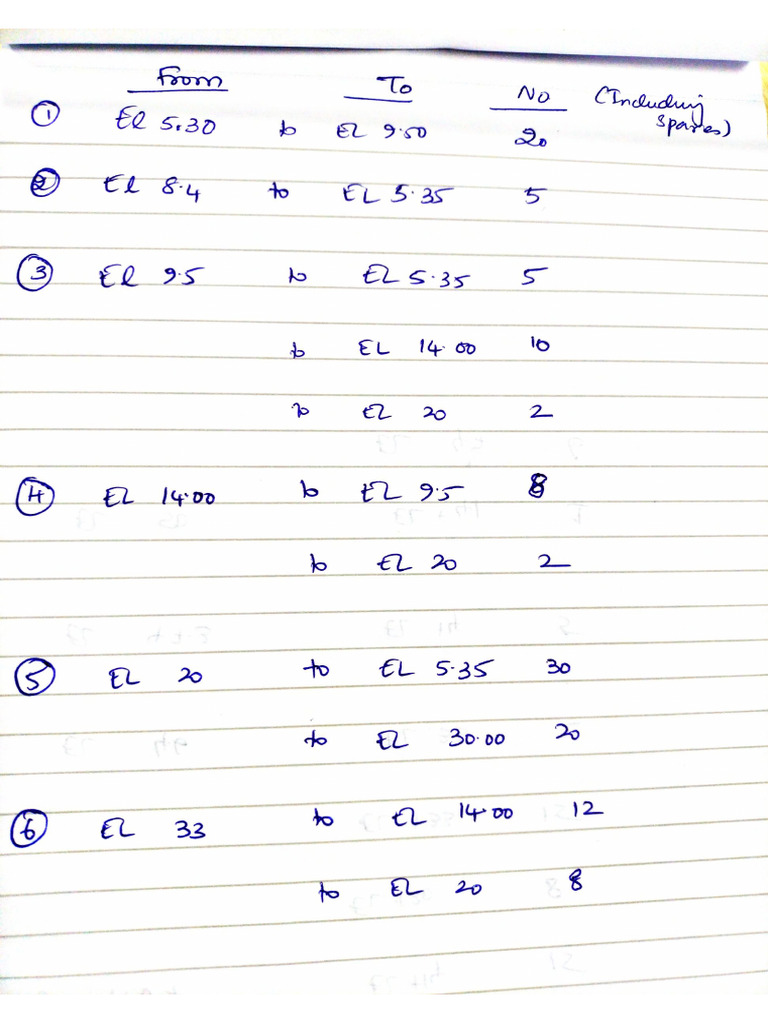 From To No (Including
① El 5.30 to EL 9.50 20 Spares)
② El 8.4 to EL 5.35 5
③ El 9.5 to EL 5.35 5
to EL 14.00 10
to EL 20 2
④ EL 14.00 to EL 9.5 8
to EL 20 2
⑤ EL 20 to EL 5.35 30
to EL 30.00 20
⑥ EL 33 to EL 14.00 12
to EL 20 8